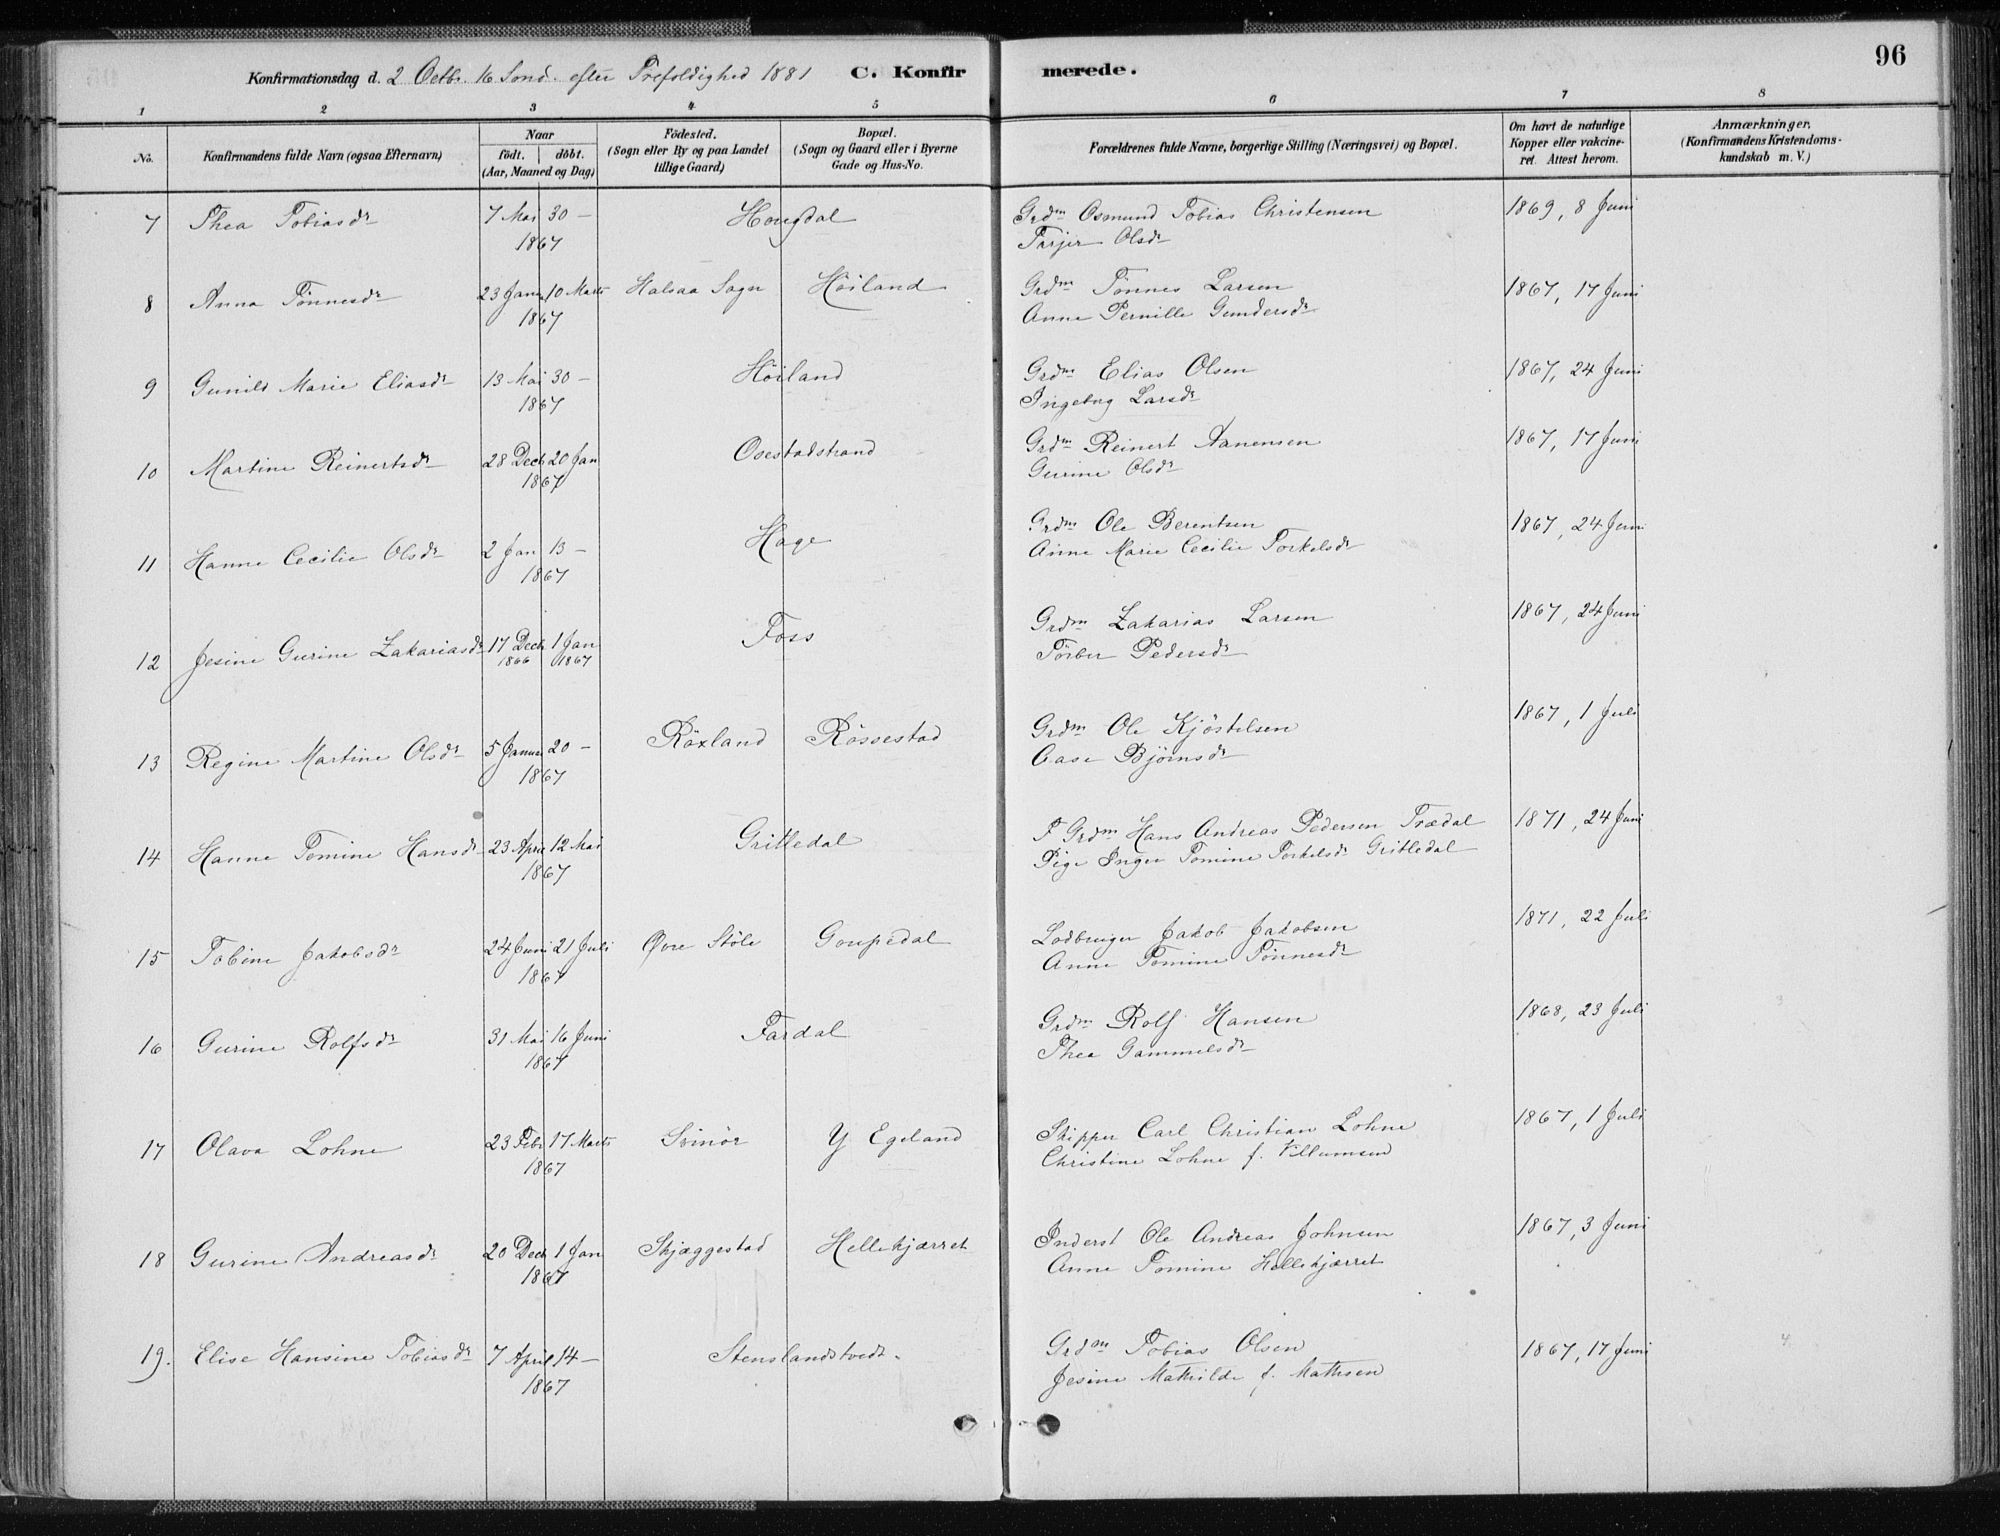 96
Konfirmationsdag d. 2 Octbr. 16 Sond. efter Trefoldighed 1881 C. Konfirmerede.
1 2 3 4 5 6 7 8
No. Konfirmandens fulde Navn (ogsaa Efternavn) Naar født. døbt. (Aar, Maaned og Dag) Födested. (Sogn eller By og paa Landet tillige Gaard) Bopæl. (Sogn og Gaard eller i Byerne Gade og Hus-No. Forældrenes fulde Navne, borgerlige Stilling (Næringsvei) og Bopæl. Om havt de naturlige Kopper eller vakcineret. Attest herom. Anmærkninger. (Konfirmandens Kristendomskundskab m. V.)
7 Thea Tobiasdr 7 Mai 30 – Hougdal Grdm Osmund Tobias Christensen 1869, 8 Juni
1867 Tarjer Olsdr
8 Anna Tønnesdr 23 Janu 10 Marts Halsaa Sogn Höiland Grdm Tønnes Larsen 1867, 17 Juni
1867 Anne Pernille Gundersdr
9 Gunild Marie Eliasdr 13 Mai 30 – Höiland Grdm Elias Olsen 1867, 24 Juni
1867 Ingeborg Larsdr
10 Martine Reinertsdr 28 Decb 20 Jan Osestadstrand Grdm Reinert Aanensen 1867, 17 Juni
1867 Gurine Olsdr
11 Hanne Cecilie Olsdr 2 Jan 13 – Hage Grdm Ole Berentsen 1867, 24 Juni
1867 Anne Marie Cecilie Torkelsdr
12 Jesine Gurine Zakariasdr 17 Decb 1 Jan Foss Grdm Zakarias Larsen 1867, 24 Juni
1866 1867 Törber Pedersdr
13 Regine Martine Olsdr 5 Januar 20 – Röxland Rössestad Grdm Ole Kjöstelsen 1867, 1 Juli
1867 Aase Bjørnsdr
14 Hanne Tomine Hansdr 23 April 12 Mai Grittedal F Grdm Hans Andreas Pedersen Trædal 1871, 24 Juni
1867 Pige Inger Tomine Torkelsdr Grittedal
15 Tobine Jakobsdr 24 Juni 21 Juli Øvre Stöle Goupedal Lodbruger Jakob Jakobsen 1871, 22 Juli
1867 Anne Tomine Tönnesdr
16 Gurine Rolfsdr 31 Mai 16 Juni Fardal Grdm Rolf Hansen 1868, 23 Juli
1867 Thea Gammelsdr
17 Olava Lohne 23 Febr 17 Marts Svinör Y Egeland Skipper Carl Christian Lohne 1867, 1 Juli
1867 Christine Lohne f. Villumsen
18 Gurine Andreasdr 20 Decb 1 Jan Skjæggestad Hellekjærret Inderst Ole Andreas Johnsen 1867, 3 Juni
1867 Anne Tomine Hellekjærret
19. Elise Hansine Tobiasdr 7 April 14 – Stenslandstvedt. Grdm Tobias Olsen 1867, 17 Juni
1867 Jesine Mathilde f. Mathsen